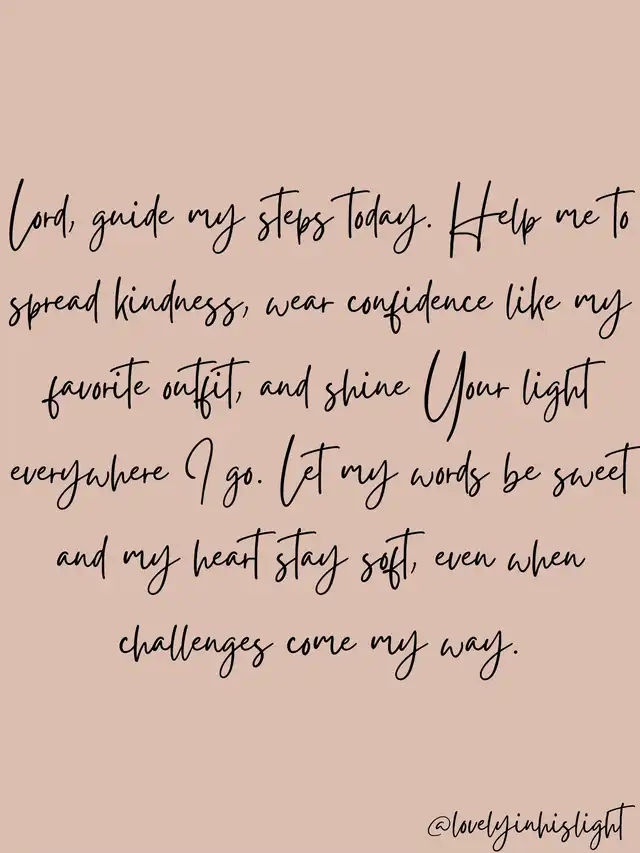 Lord, guide my steps today. Help me to
spread kindness, wear confidence like my
favorite outfit, and shine Your light
everywhere I go. Let my words be sweet
and my heart stay soft, even when
challenges come my way.
@lovelyinhislight